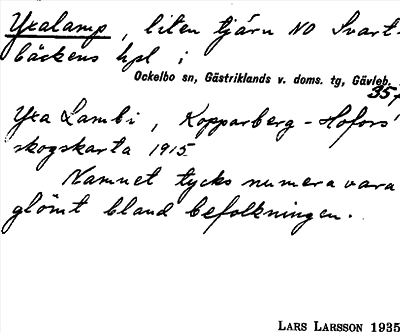 Yxalamp, liten tjärn NO Svart-
bäckens hpl i
Ockelbo sn, Gästriklands v. doms. tg, Gävleb.
35,
Yxa Lambi, Kopparberg-Hofors'
skogskarta 1915
Namnet tycks numera vara
glömt bland befolkningen.
LARS LARSSON 1935